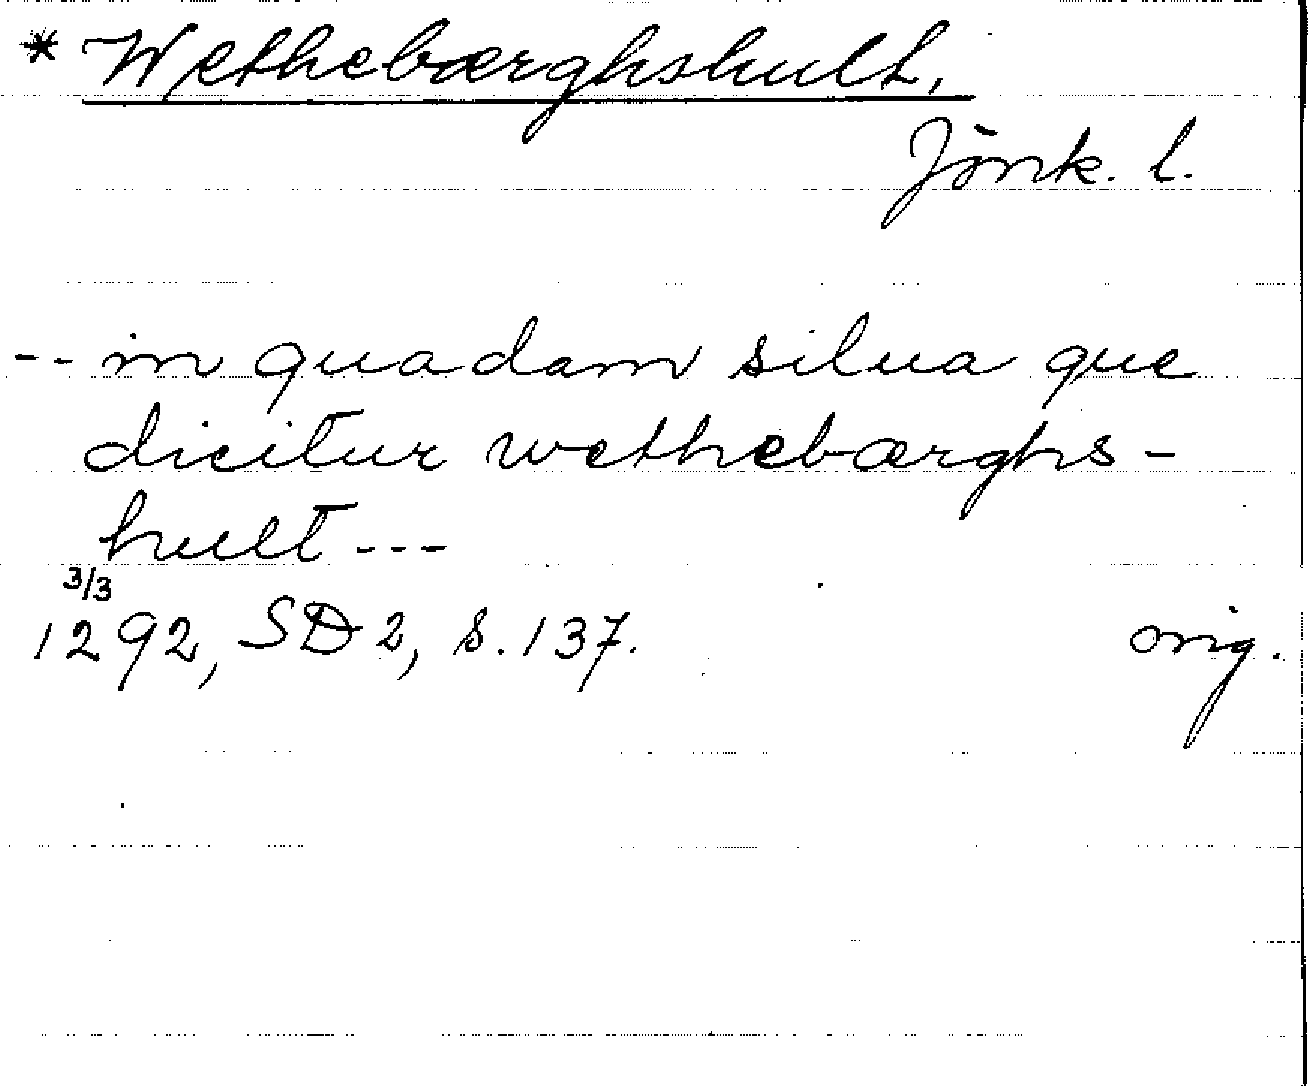 * Wethebærghshult.
Jönk. l.
-- in quadam silua que
dicitur wethebærghs-
hult ---
3/3
1292, SD 2, s. 137. orig.